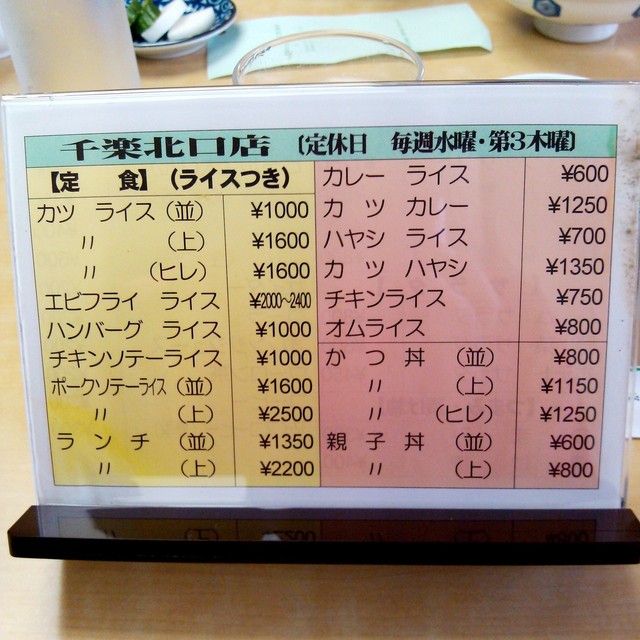 千楽北口店 〔定休日 毎週水曜・第3木曜〕
【定 食】(ライスつき)
カツ ライス(並) ¥1000
〃 (上) ¥1600
〃 (ヒレ) ¥1600
エビフライ ライス ¥2000~2400
ハンバーグ ライス ¥1000
チキンソテーライス ¥1000
ポークソテーライス(並) ¥1600
〃 (上) ¥2500
ランチ (並) ¥1350
〃 (上) ¥2200
カレー ライス ¥600
カツ カレー ¥1250
ハヤシ ライス ¥700
カツ ハヤシ ¥1350
チキンライス ¥750
オムライス ¥800
かつ丼 (並) ¥800
〃 (上) ¥1150
〃 (ヒレ) ¥1250
親子丼 (並) ¥600
〃 (上) ¥800